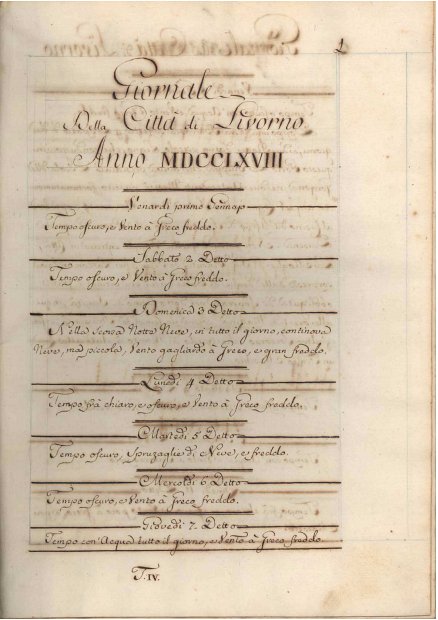 1
Giornale
Della Città di Livorno
Anno MDCCLXVIII
Venardi primo Gennajo
Tempo oscuro, e Vento à Greco freddo.
Sabbato 2 Detto
Tempo oscuro, e Vento à Greco freddo.
Domenica 3 Detto
Nella scorsa Notte Neve, in tutto il giorno, continova
Neve, ma piccola, Vento gagliardo à Greco, e gran freddo.
Lunedi 4 Detto
Tempo frà chiaro, e oscuro, e Vento à Greco freddo.
Martedi 5 Detto
Tempo oscuro, Spruzaglie di Neve, e freddo.
Mercoldi 6 Detto
Tempo oscuro, e Vento à Greco freddo.
Giovedi 7 Detto
Tempo con Acqua tutto il giorno, e Vento à Greco freddo.
T. IV.